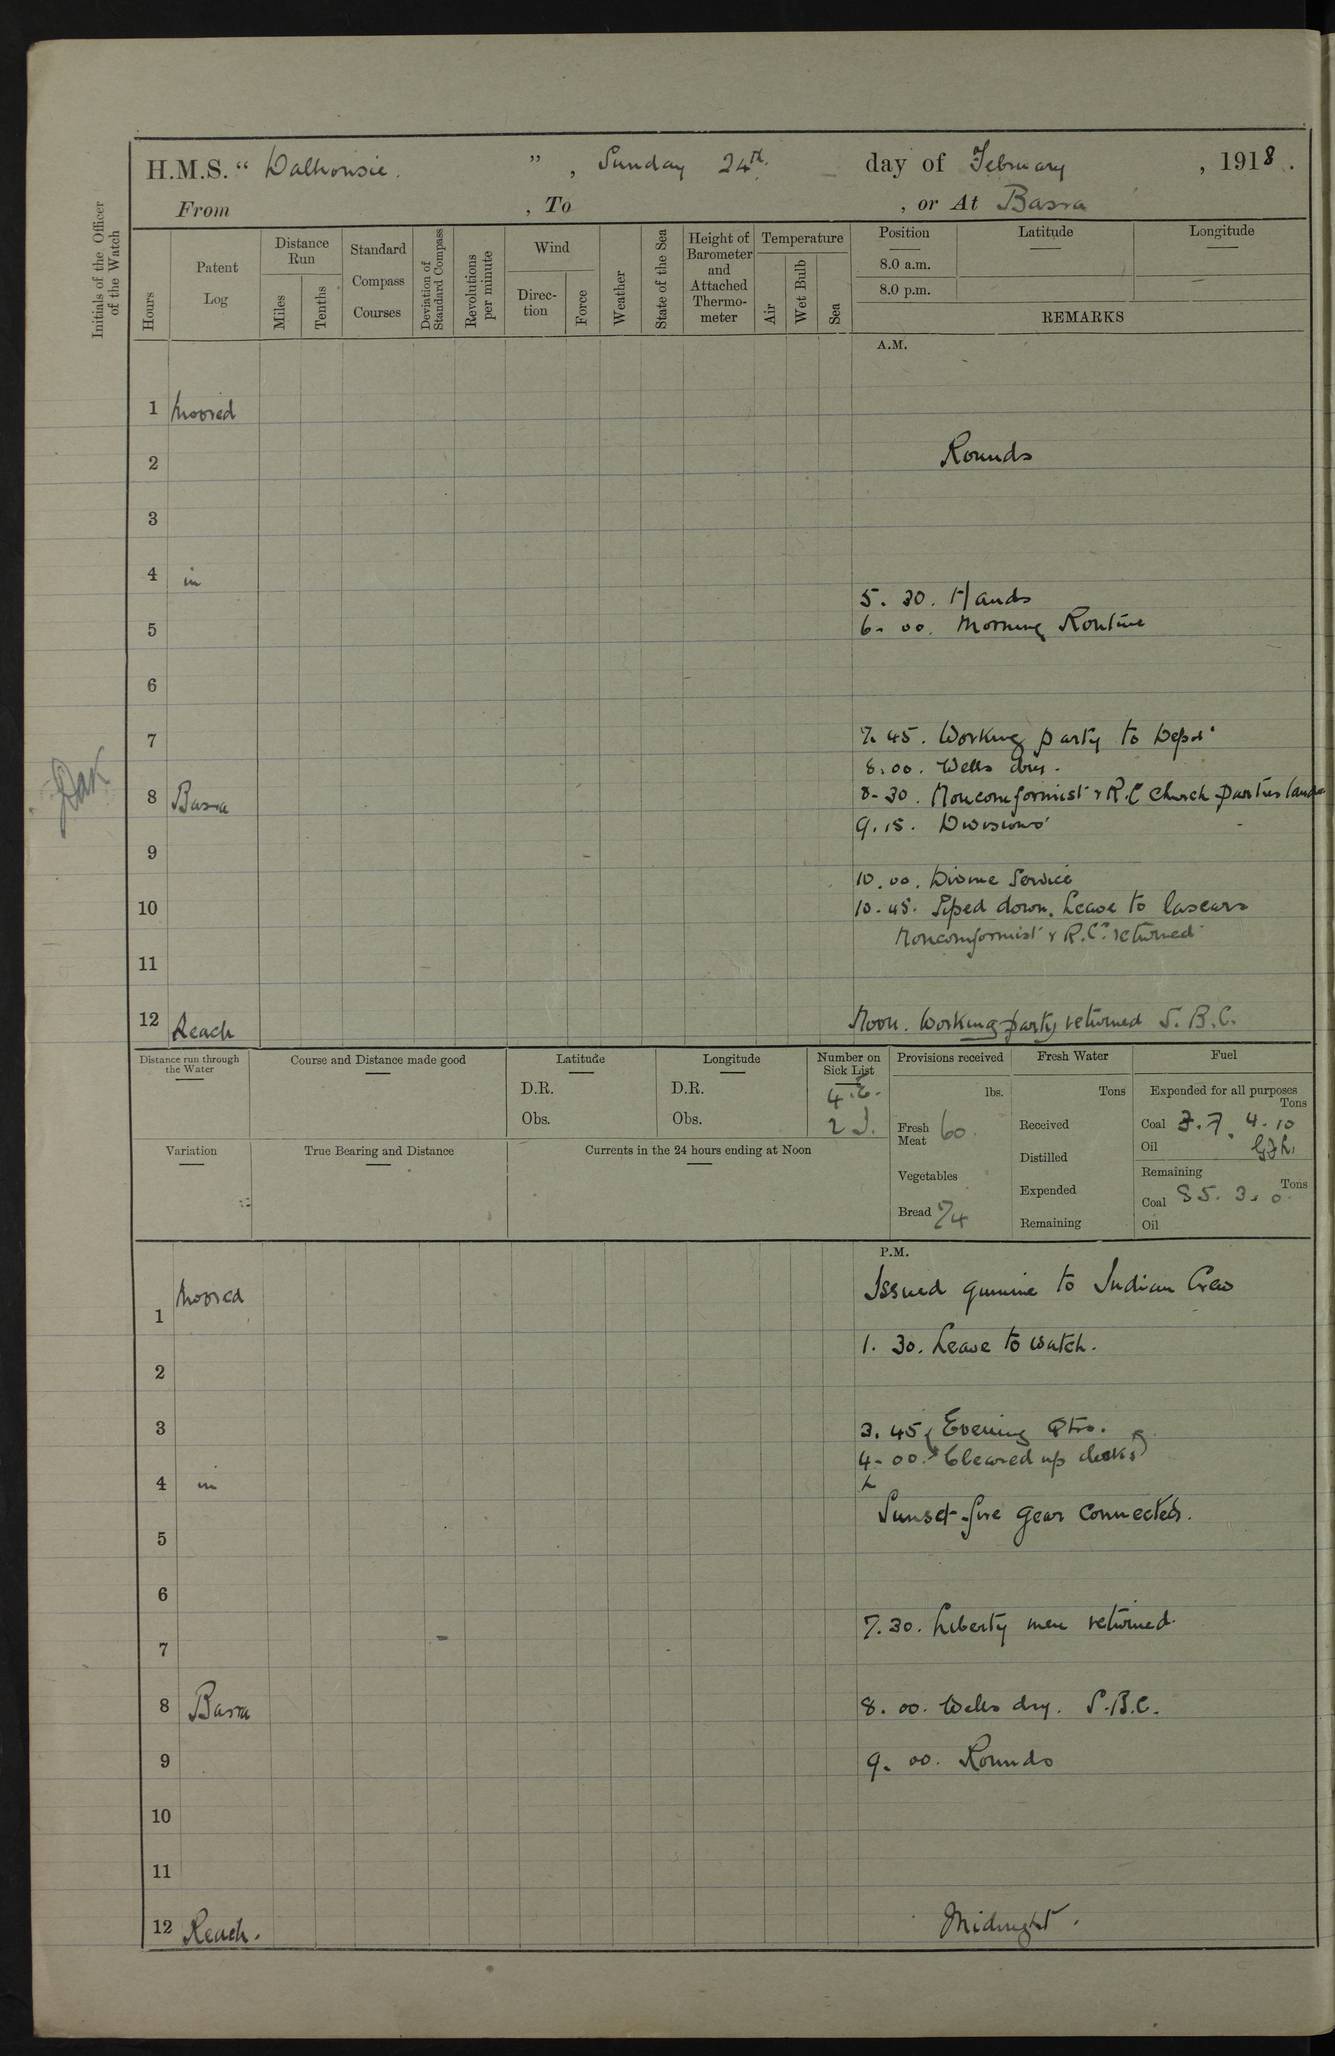 H.M.S. "Dalhousie.", Sunday 24th. day of February, 1918.
From , To , or At Basra
Initials of the Officer of the Watch
Hours
Patent Log
Distance Run
Miles
Tenths
Standard Compass Courses
Deviation of Standard Compass
Revolutions per minute
Wind
Direction
Force
Weather
State of the Sea
Height of Barometer and Attached Thermometer
Temperature
Air
Wet Bulb
Sea
Position
Latitude
Longitude
8.0 a.m.
8.0 p.m.
REMARKS
A.M.
1 Moored
2 Rounds
3
4 in
5. 30. Hands
5 6. 00. Morning Routine
6
7 7.45. Working party to Depot
8.00. Wells dry.
8 Basra 8-30. Nonconformist & R.C church parties landed
9.15. Divisions
9
10.00. Divine Service
10 10.45. Piped down. Leave to lascars
Nonconformist & R.Cs returned
11
12 Reach Noon. Working party returned S.B.C.
Distance run through the Water
Course and Distance made good
Latitude
D.R.
Obs.
Longitude
D.R.
Obs.
Number on Sick List
4.E.
2 I.
Provisions received
lbs.
Fresh Meat 60.
Vegetables
Bread 74
Fresh Water
Tons
Received
Distilled
Expended
Remaining
Fuel
Expended for all purposes
Tons
Coal 3.7. 4.10
Oil
Remaining
Tons
Coal 85. 3. 0.
Oil
Variation
True Bearing and Distance
Currents in the 24 hours ending at Noon
P.M.
Moored Issued quinine to Indian Crew
1
1. 30. Leave to watch.
2
3 3.45 Evening Qtrs.
4-00. Cleared up decks
4 in
Sunset fire gear connected.
5
6
7.30. Liberty men returned.
7
8 Basra 8.00. Wells dry. S.B.C.
9 9.00. Rounds
10
11
12 Reach. Midnight.